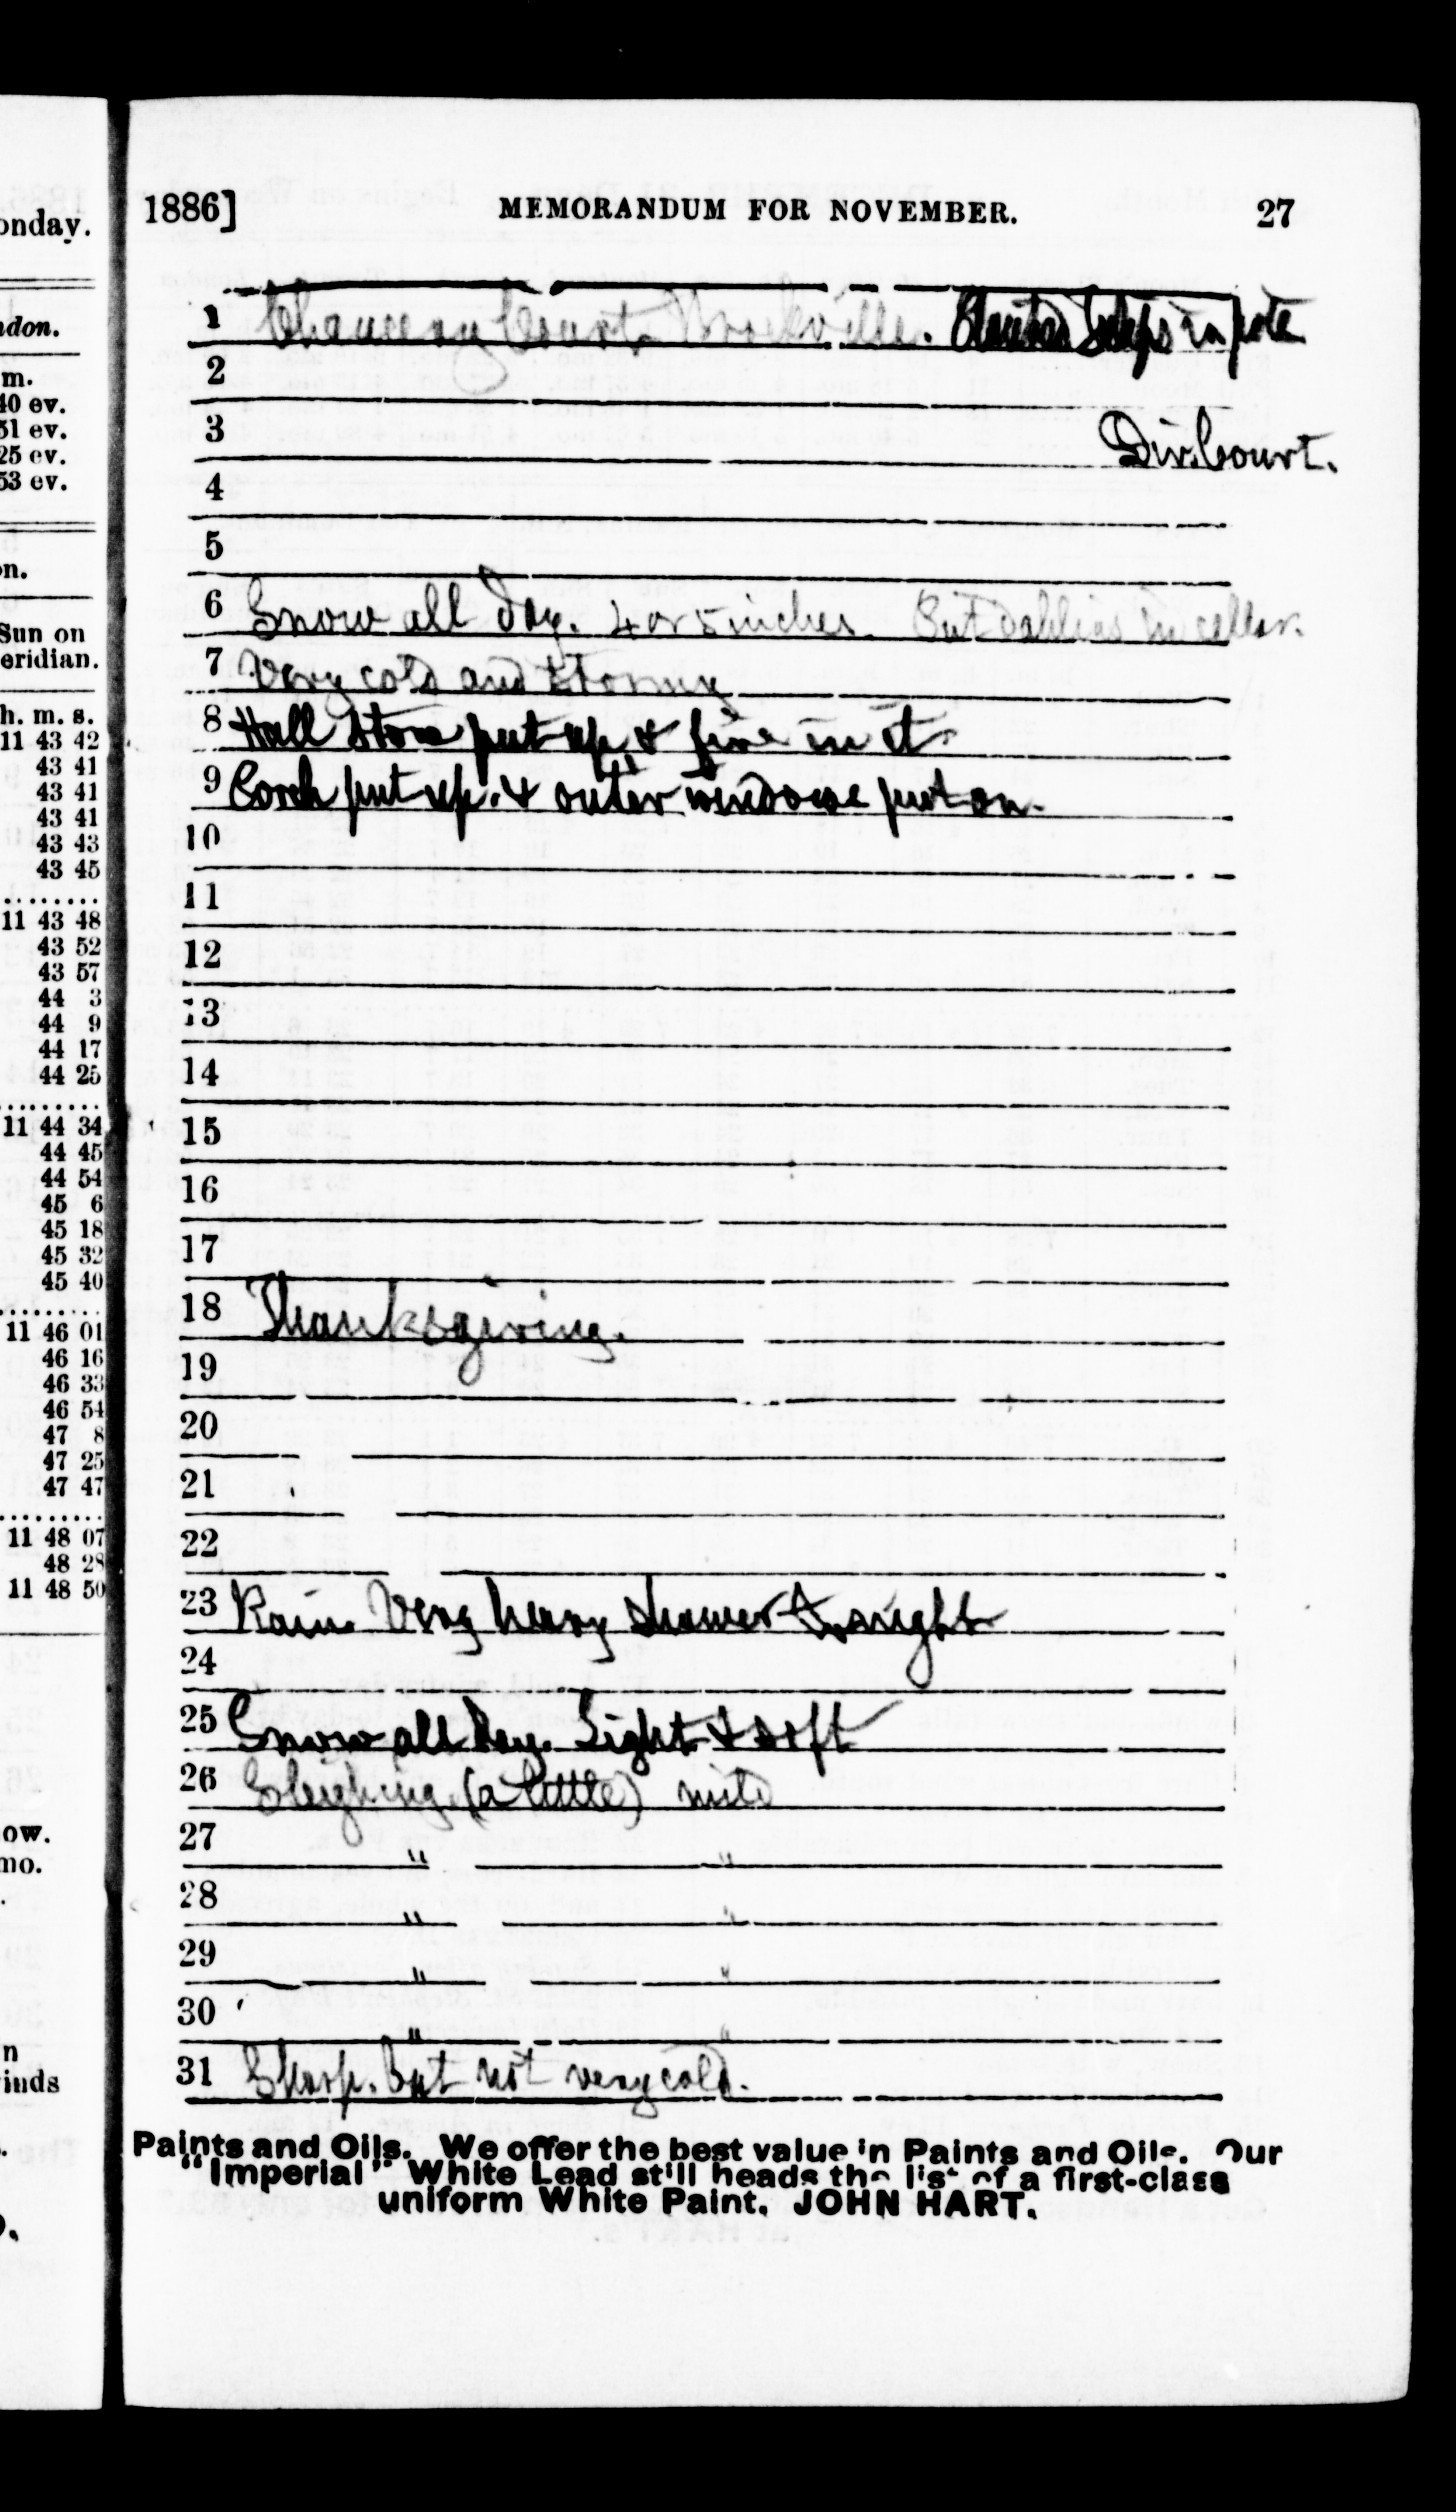 onday.
don.
m.
40 ev.
51 ev.
25 ev.
53 ev.
on.
Sun on
eridian.
h. m. s.
11 43 42
43 41
43 41
43 41
43 43
43 45
11 43 48
43 52
43 57
44 3
44 9
44 17
44 25
11 44 34
44 45
44 54
45 6
45 18
45 32
45 40
11 46 01
46 16
46 33
46 54
47 8
47 25
47 47
11 48 07
48 28
11 48 50
ow.
mo.
n
inds
1886] MEMORANDUM FOR NOVEMBER. 27
1 Chancery Court Brockville. Planted Tulips in pots
2
3 Div. Court.
4
5
6 Snow all day. 4 or 5 inches. Put dahlias in cellar.
7 Very cold and stormy
8 Hall Stove put up & fire in it
9 Porch put up. & outer windows put on.
10
11
12
13
14
15
16
17
18 Thanksgiving.
19
20
21
22
23 Rain. Very heavy shower to-night
24
25 Snow all day. Light & soft
26 Sleighing (a little) mild
27 " "
28 " "
29 " "
30 " "
31 Sharp. but not very cold.
Paints and Oils. We offer the best value in Paints and Oils. Our
"Imperial" White Lead still heads the list of a first-class
uniform White Paint. JOHN HART.